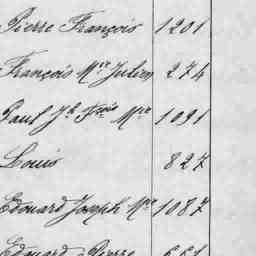 Pierre François 1201
François Mie Julien 274
Paul Jh Fois Mie 1091
Louis 827
Edouard Joseph Mie 1087
Edouard Pierre 661